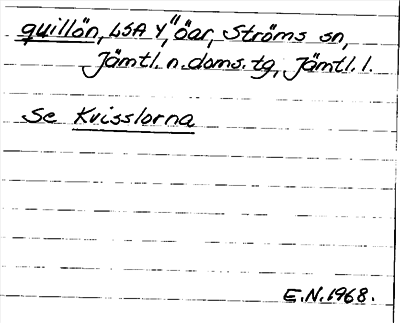 quillön, LSA Y, "öar, Ströms sn,
Jämtl. n. doms. tg, Jämtl. l.
Se Kvisslorna
E.N. 1968.